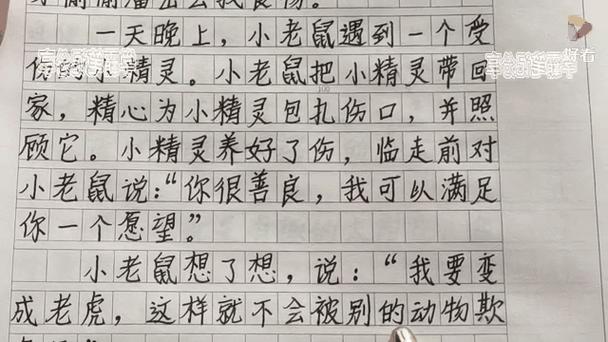 一天晚上，小老鼠遇到一个受
伤的小精灵。小老鼠把小精灵带回
家，精心为小精灵包扎伤口，并照
顾它。小精灵养好了伤，临走前对
小老鼠说：“你很善良，我可以满足
你一个愿望。”
小老鼠想了想，说：“我要变
成老虎，这样就不会被别的动物欺